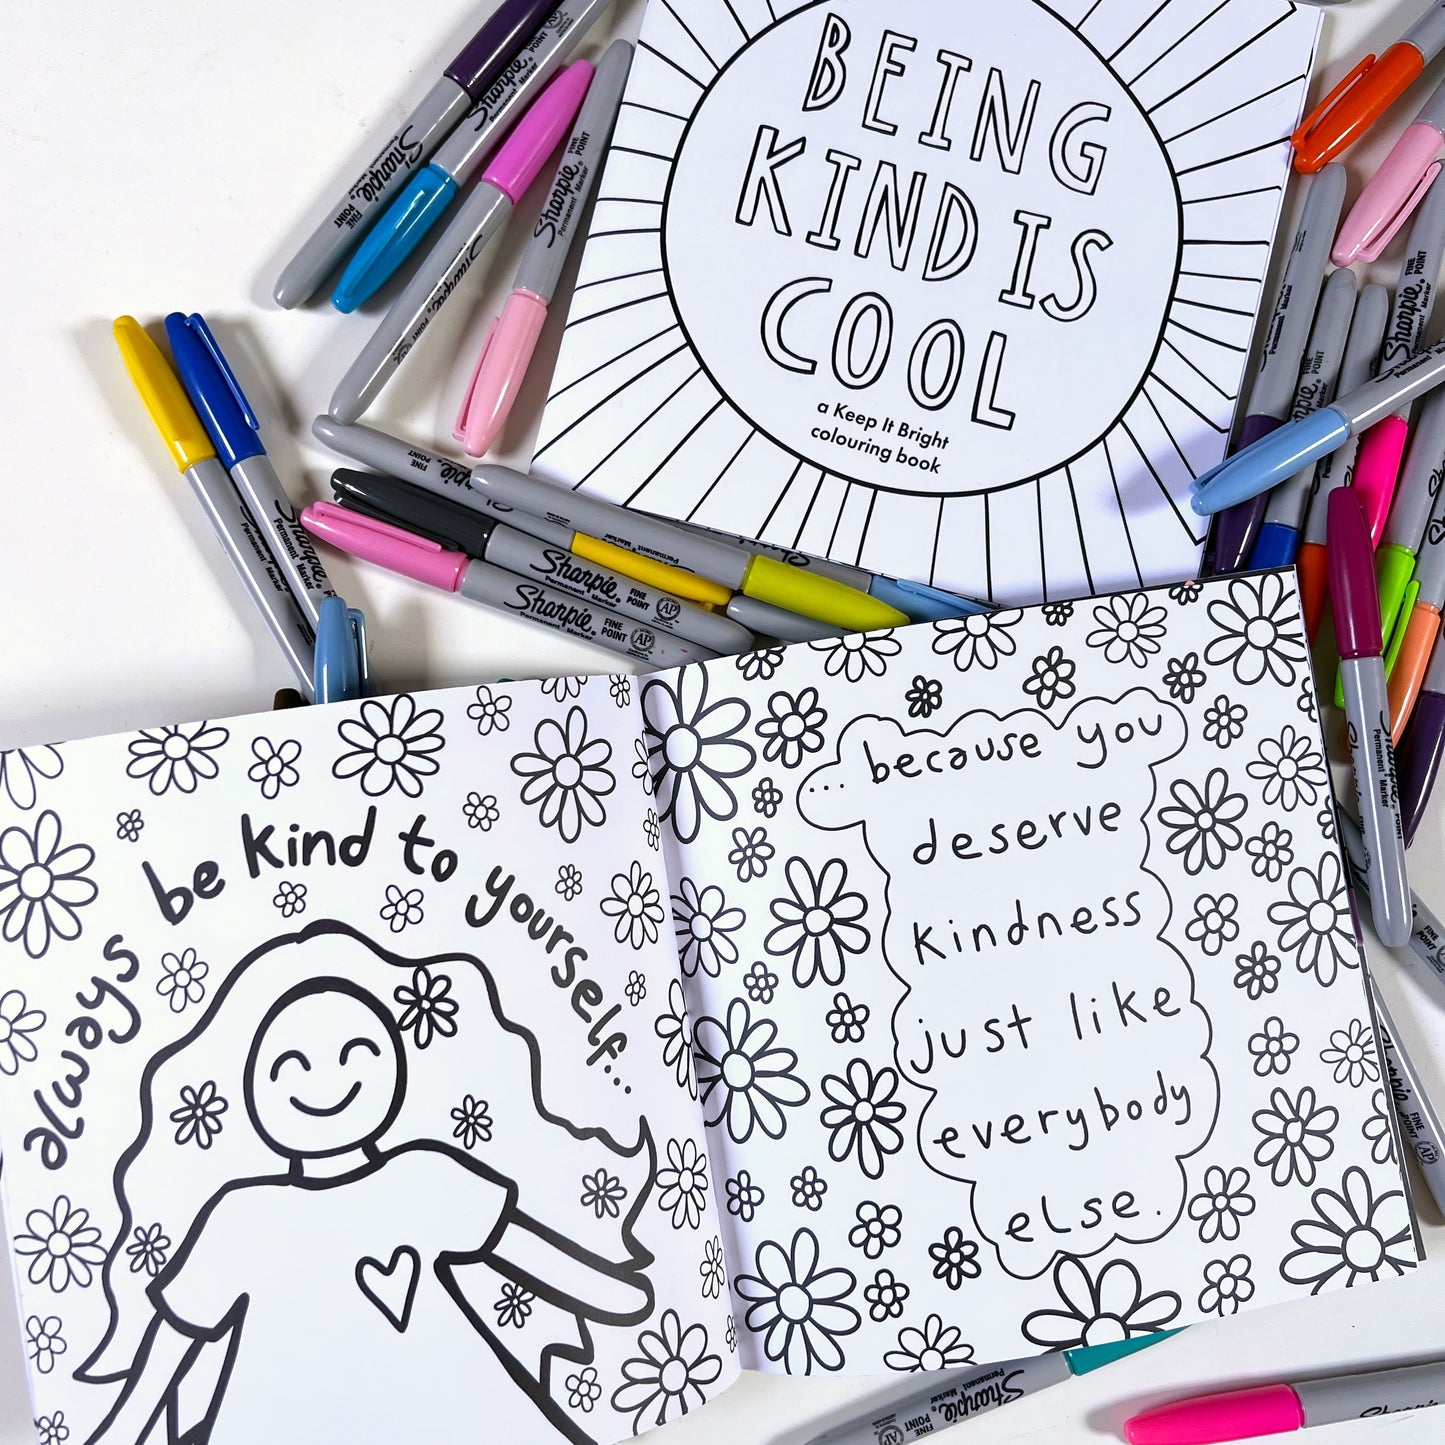 BEING
KIND IS
COOL
a Keep It Bright
colouring book
always be kind to yourself...
... because you
deserve
kindness
just like
everybody
else.
Sharpie®
Permanent Marker
FINE
POINT
Sharpie®
Permanent Marker
FINE
POINT
Sharpie®
Permanent Marker
FINE
POINT
Sharpie®
Permanent Marker
FINE
POINT
AP
Sharpie®
Permanent Marker
FINE
POINT
AP
Sharpie
FINE
POINT
Sharpie®
Permanent Marker
FINE
POINT
AP